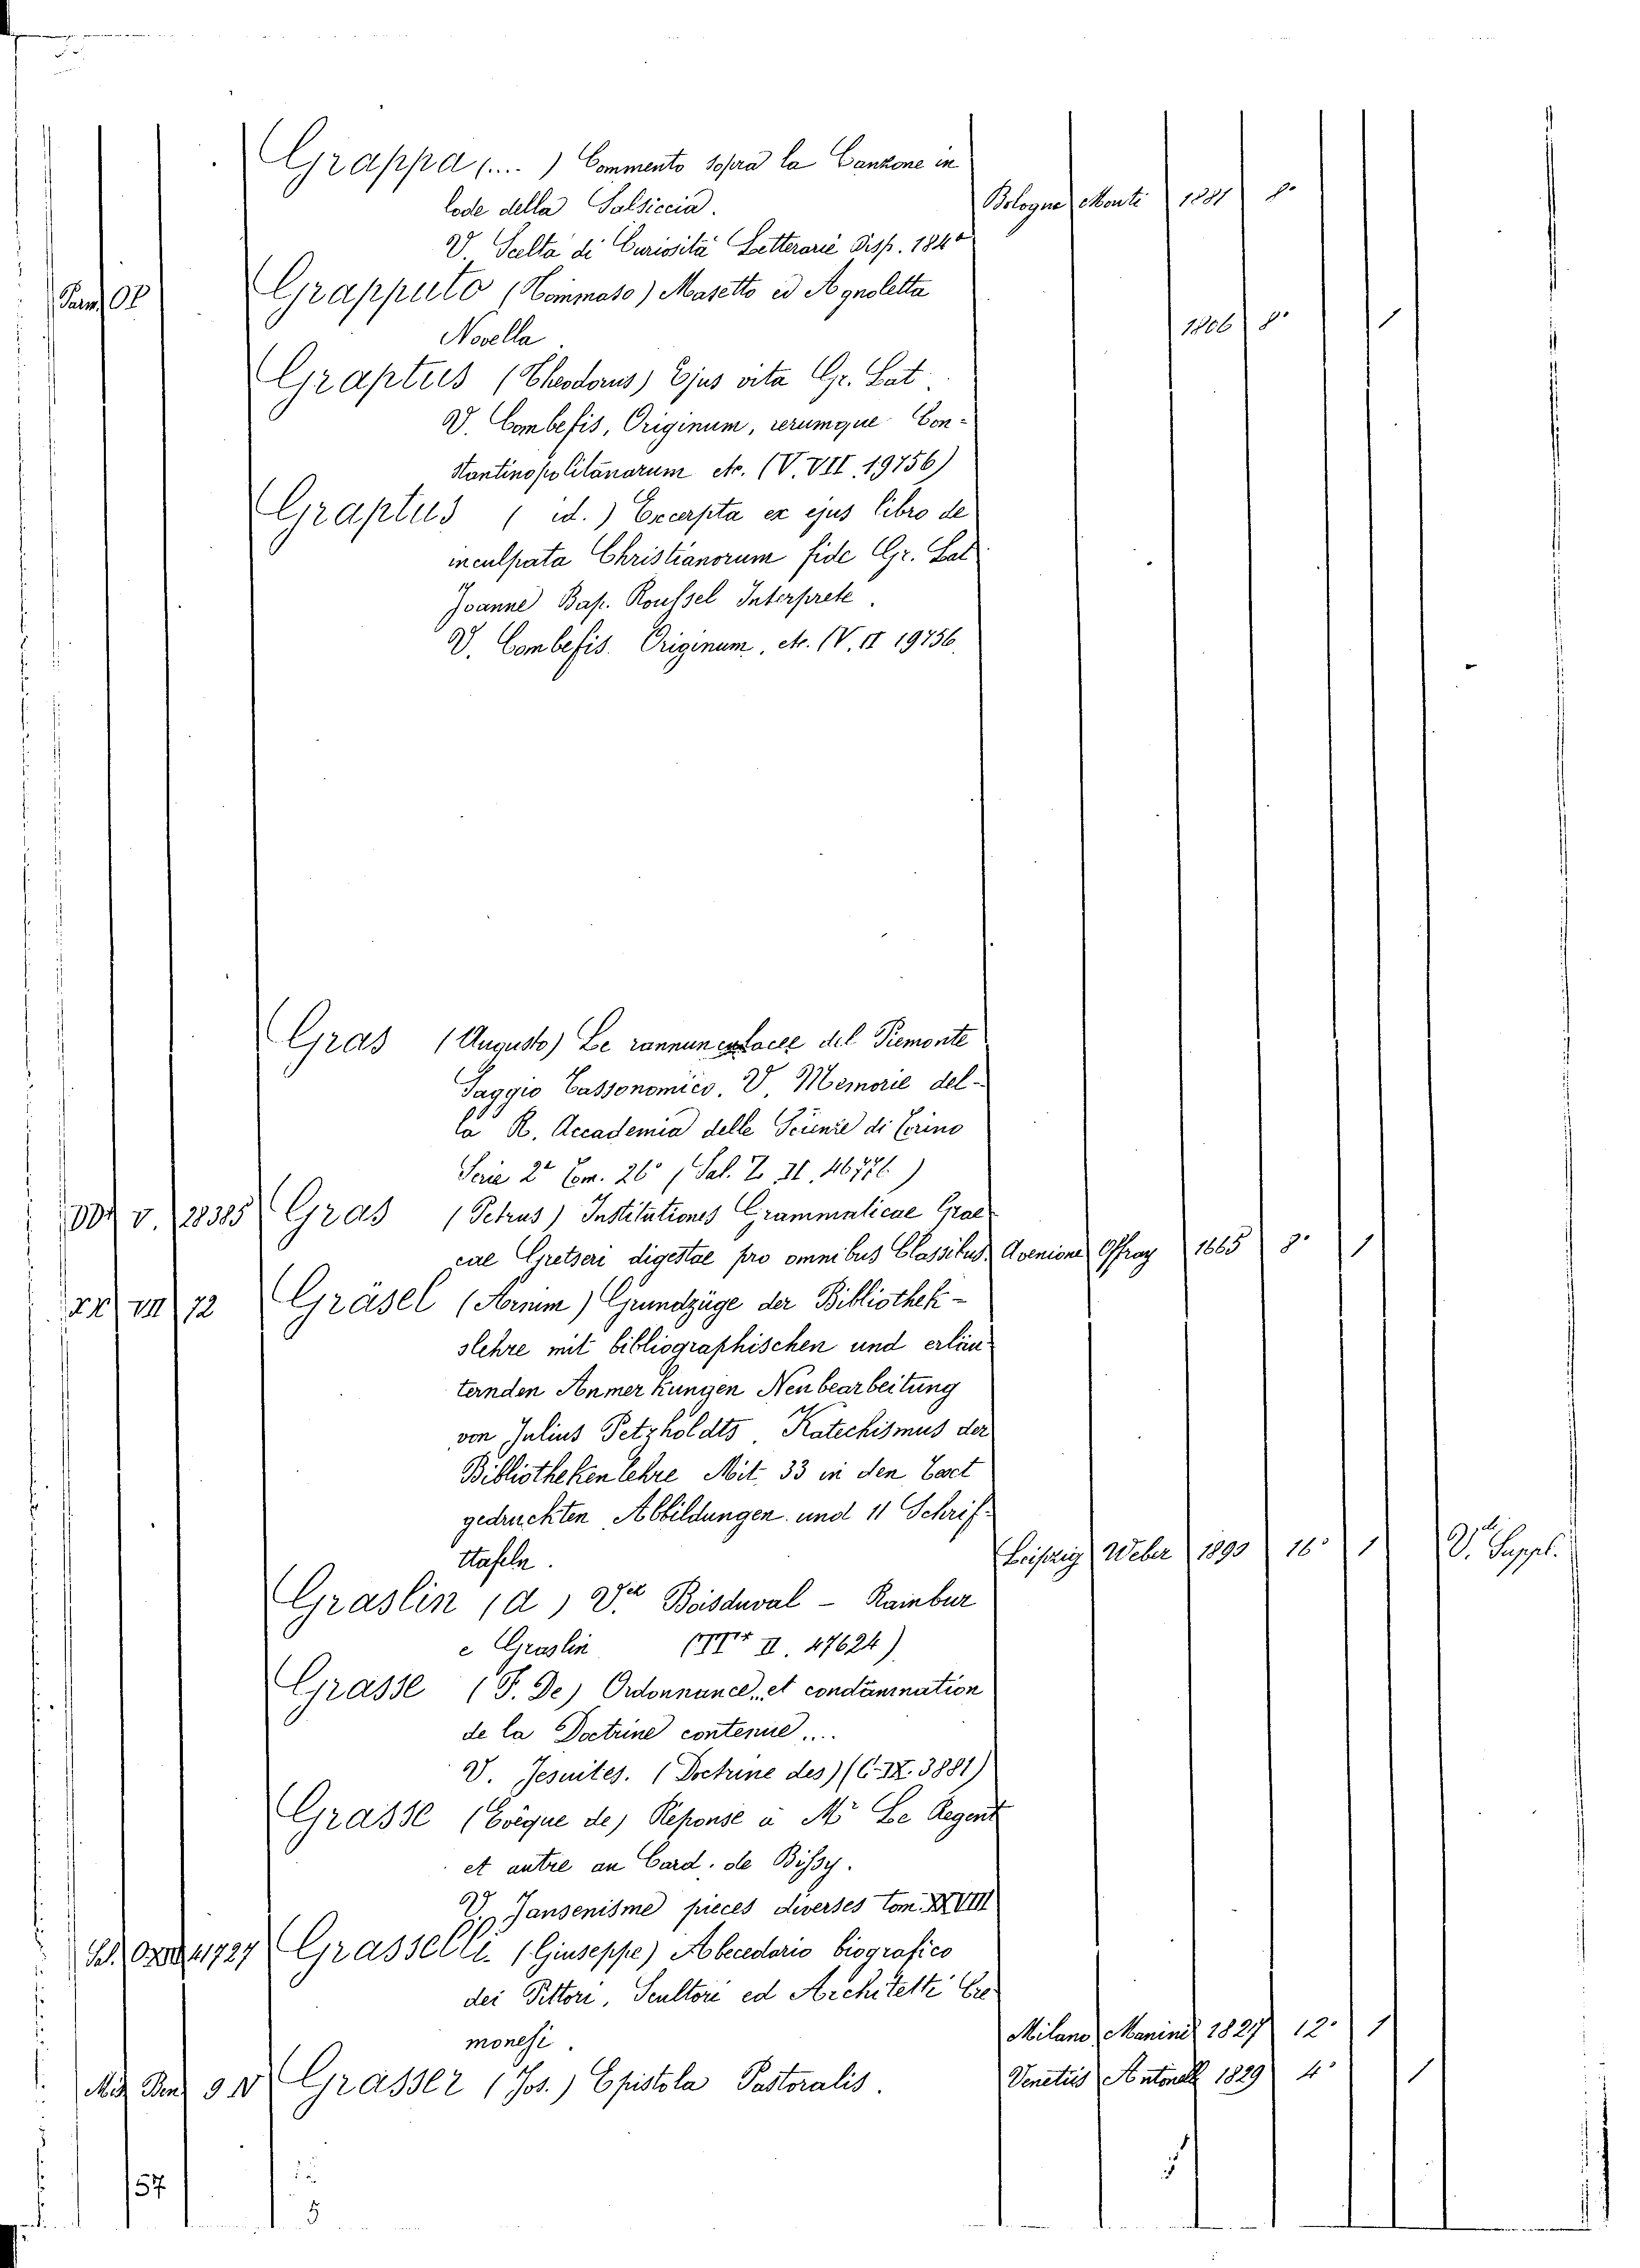 Grappa (....) Commento sopra la Canzone in
lode della Salsiccia. Bologna Monti 1881 8°
V. Scelta di Curiosità Letterarie Disp. 184ª
Grapputo (Tommaso) Masetto ed Agnoletta
Novella 1806 8° 1
Graptus (Theodorus) Ejus vita Gr. Lat.
V. Combefis, Originum, rerumque Con-
stantinopolitanarum etc. (V. VII. 19756)
Graptus (id.) Excerpta ex ejus libro de
inculpata Christianorum fide Gr. Lat
Joanne Bap. Roussel Interprete.
V. Combefis. Originum, etc. (V. 19756.
Gras (Augusto) Le del Piemonte
Saggio Tassonomico. V. Memorie del-
la R. Accademia delle Scienze di Torino
Serie 2ª Tom. 26° (Sal. Z. II. 46776)
V. 28385 Gras (Petrus) Institutiones Grammaticae Grae
cae Gretseri digestae pro omnibus Classibus. Avenione Offray 1665 8° 1
XX VII 72 Gräsel (Arnim) Grundzüge der Bibliothek-
slehre mit bibliographischen und erläu-
ternden Anmerkungen Neubearbeitung
von Julius Petzholdts Katechismus der
Bibliothekenlehre Mit 33 in den Text
gedruckten Abbildungen und 11 Schrif-
ttafeln. Leipzig Weber 1890 16° 1 V. Suppl.
Graslin (d) Boisduval - Rambur
e Graslin II. 47624)
Grasse (F. De) Ordonnance, et condamnation
de la Doctrine contenue....
V. Jesuites. (Doctrine des) (C. IX. 3881)
Grasse (Evêque de) Reponse à Mr Le Regent
et autre au Card. de Bissy.
V. Jansenisme pieces diverses tom. XXVIII
41727 Grasselli (Giuseppe) Abecedario biografico
dei Pittori, Scultori ed Architetti Cre-
monesi. Milano Manini 1827 12° 1
Grasser (Jos.) Epistola Pastoralis. Venetiis Antonelli 1829 4° 1
57
5